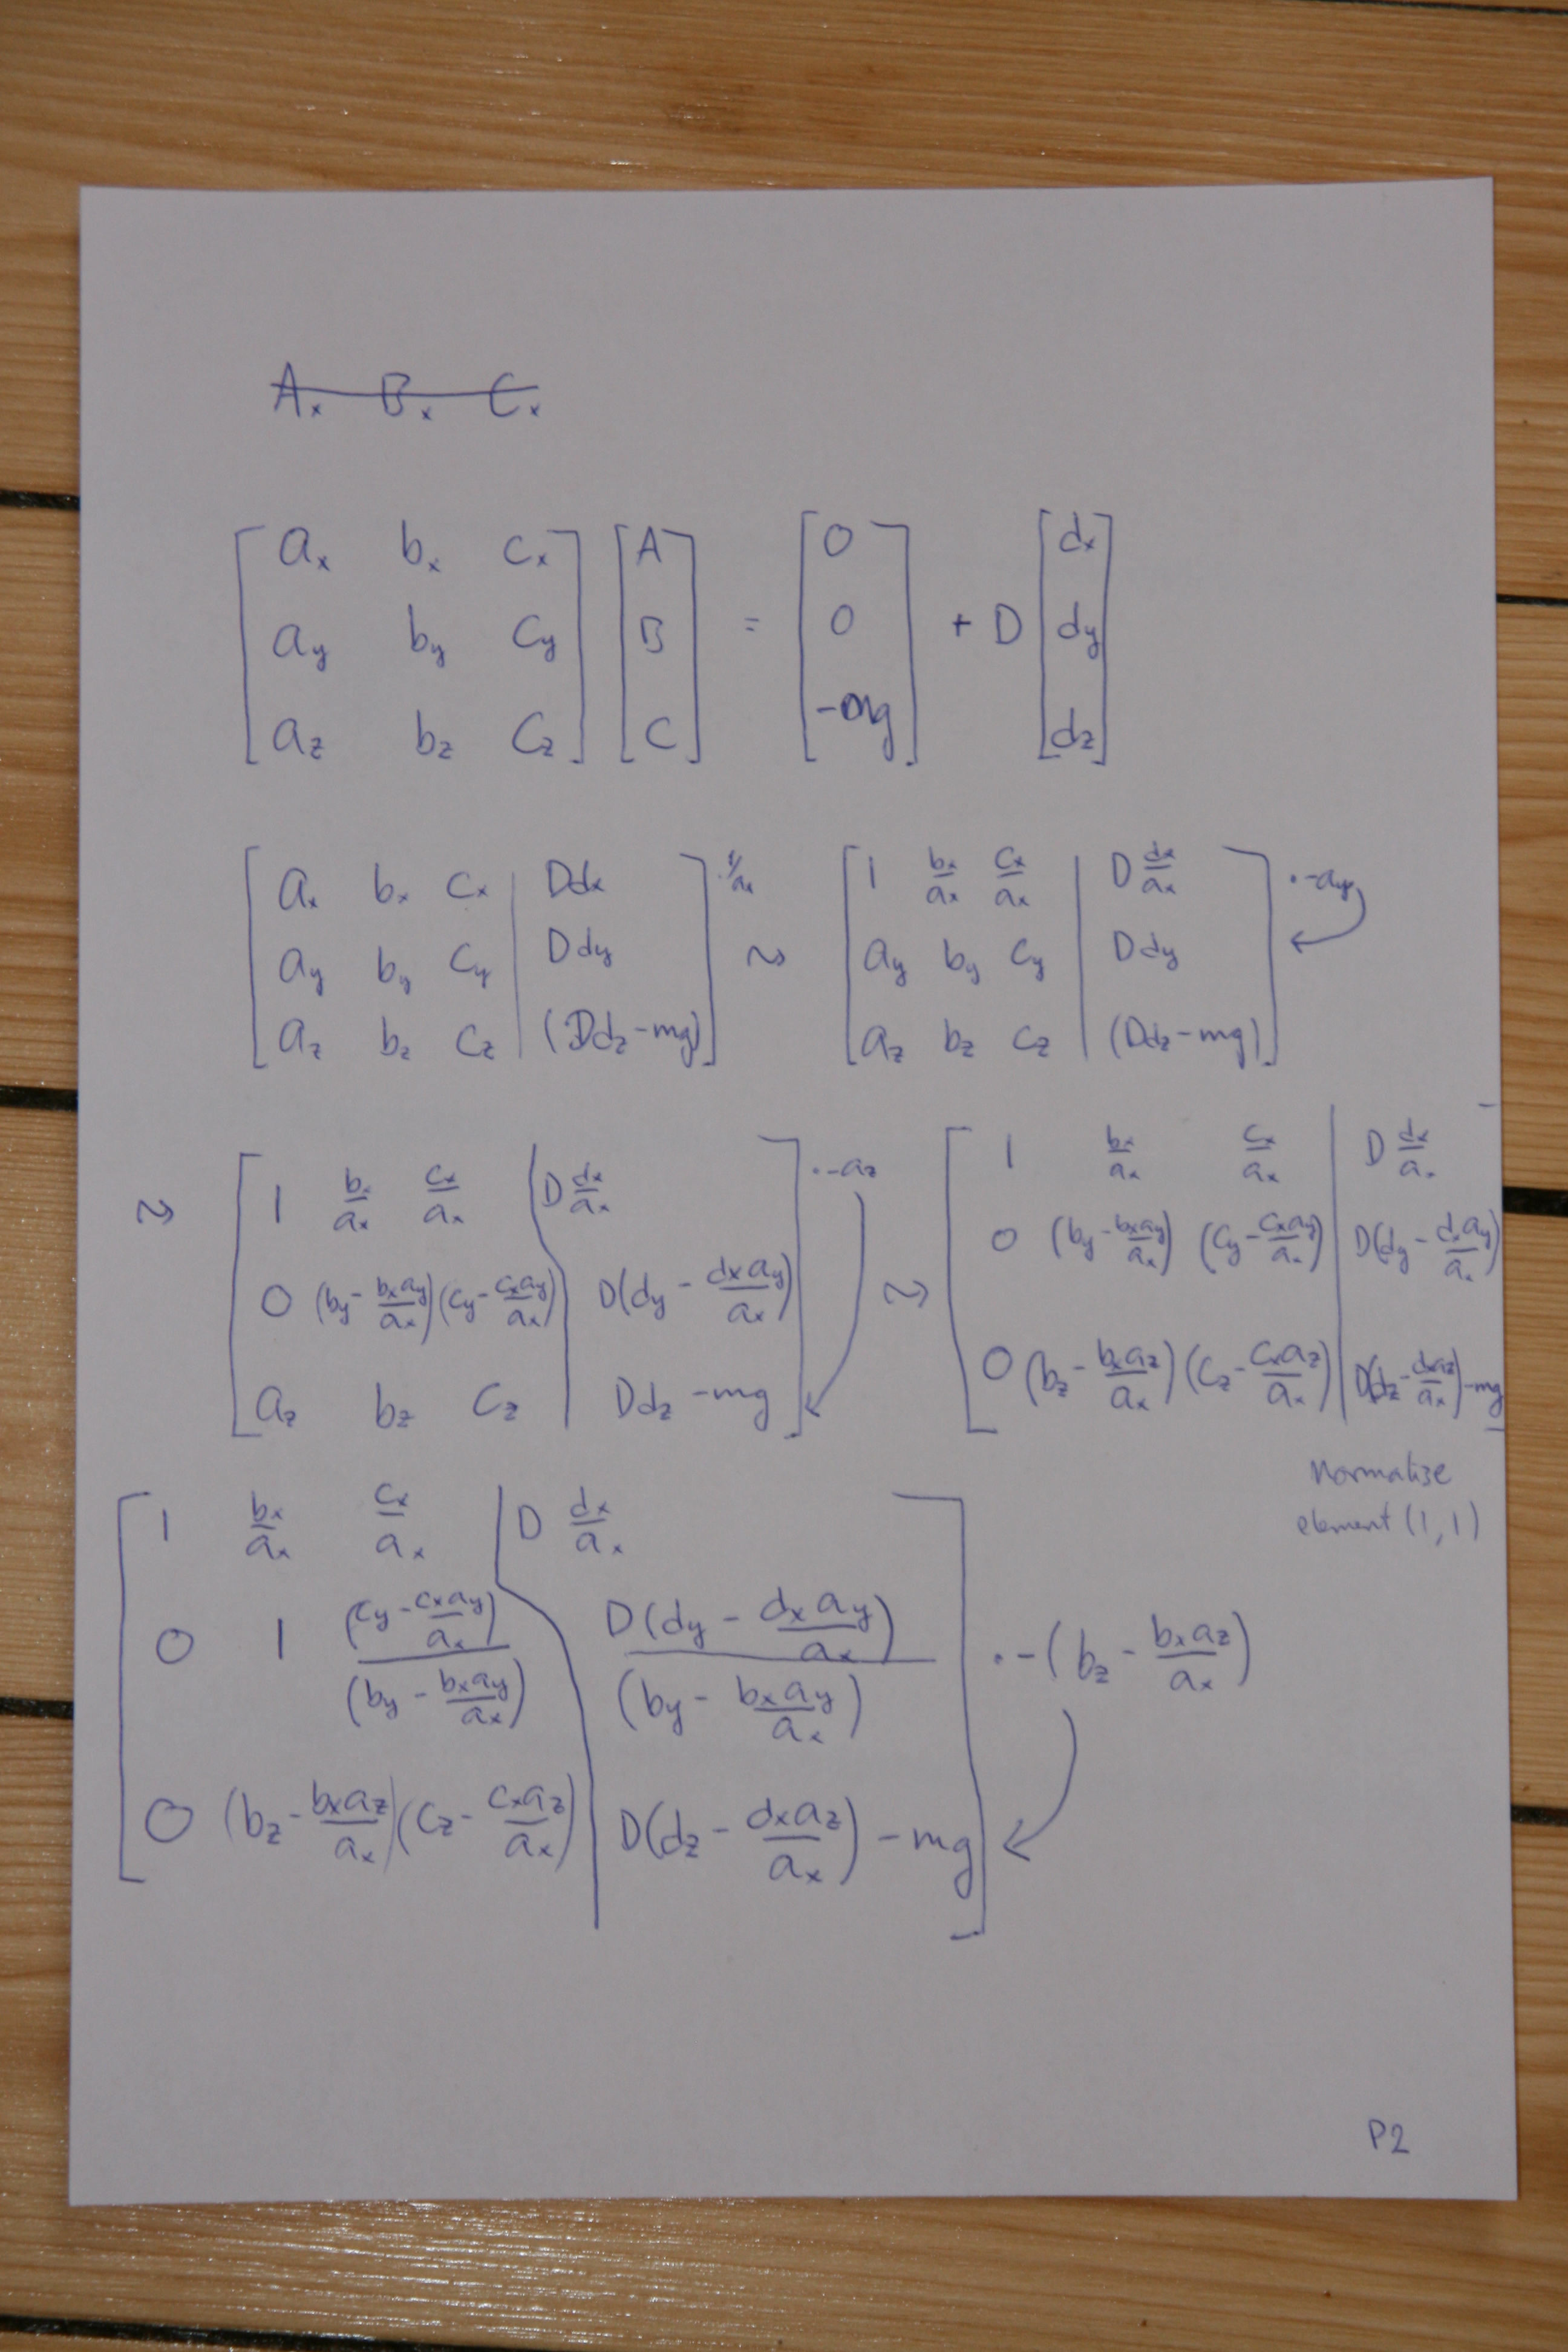 A_x B_x C_x
[a_x b_x c_x; a_y b_y c_y; a_z b_z c_z] [A; B; C] = [0; 0; -mg] + D [d_x; d_y; d_z]
[a_x b_x c_x | Dd_x; a_y b_y c_y | Dd_y; a_z b_z c_z | (Dd_z - mg)] · 1/a_x ~ [1 b_x/a_x c_x/a_x | D d_x/a_x; a_y b_y c_y | Dd_y; a_z b_z c_z | (Dd_z - mg)] · -a_y
~ [1 b_x/a_x c_x/a_x | D d_x/a_x; 0 (b_y - b_x a_y/a_x) (c_y - c_x a_y/a_x) | D(d_y - d_x a_y/a_x); a_z b_z c_z | Dd_z - mg] · -a_z ~ [1 b_x/a_x c_x/a_x | D d_x/a_x; 0 (b_y - b_x a_y/a_x) (c_y - c_x a_y/a_x) | D(d_y - d_x a_y/a_x); 0 (b_z - b_x a_z/a_x) (c_z - c_x a_z/a_x) | D(d_z - d_x a_z/a_x) - mg]
Normalize
element (1,1)
[1 b_x/a_x c_x/a_x | D d_x/a_x; 0 1 (c_y - c_x a_y/a_x)/(b_y - b_x a_y/a_x) | D(d_y - d_x a_y/a_x)/(b_y - b_x a_y/a_x); 0 (b_z - b_x a_z/a_x) (c_z - c_x a_z/a_x) | D(d_z - d_x a_z/a_x) - mg] · -(b_z - b_x a_z/a_x)
P2